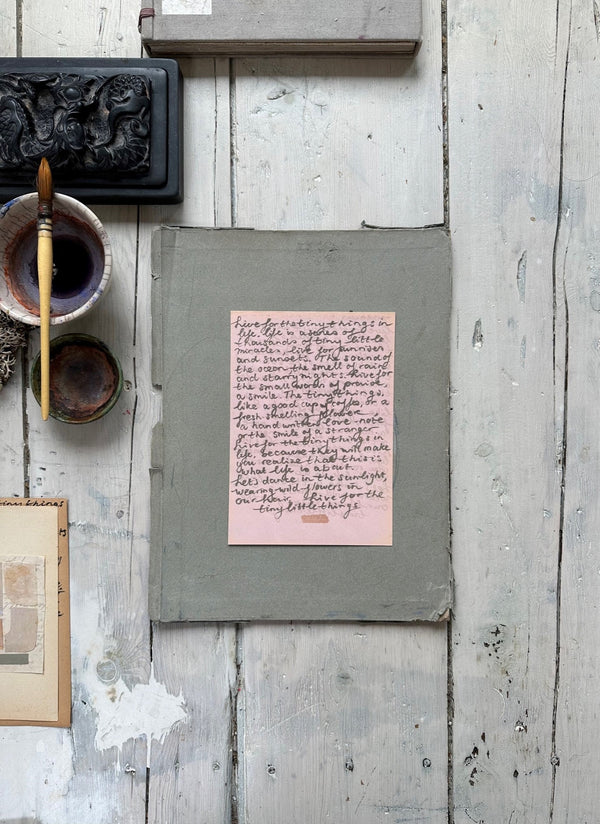 tiny things
Live for the tiny things in
life. life is a series of
thousands of tiny little
miracles, live for sunrises
and sunsets. The sound of
the ocean the smell of rain
and starry nights. Live for
the small words of praise,
a smile. The tiny things,
like a good cup of coffee, or a
fresh smelling flower,
a hand written love-note
or the smile of a stranger
Live for the tiny things in
life, because they will make
you realize that this is
what life is about.
Let's dance in the sunlight,
wearing wild flowers in
our hair. Live for the
tiny little things